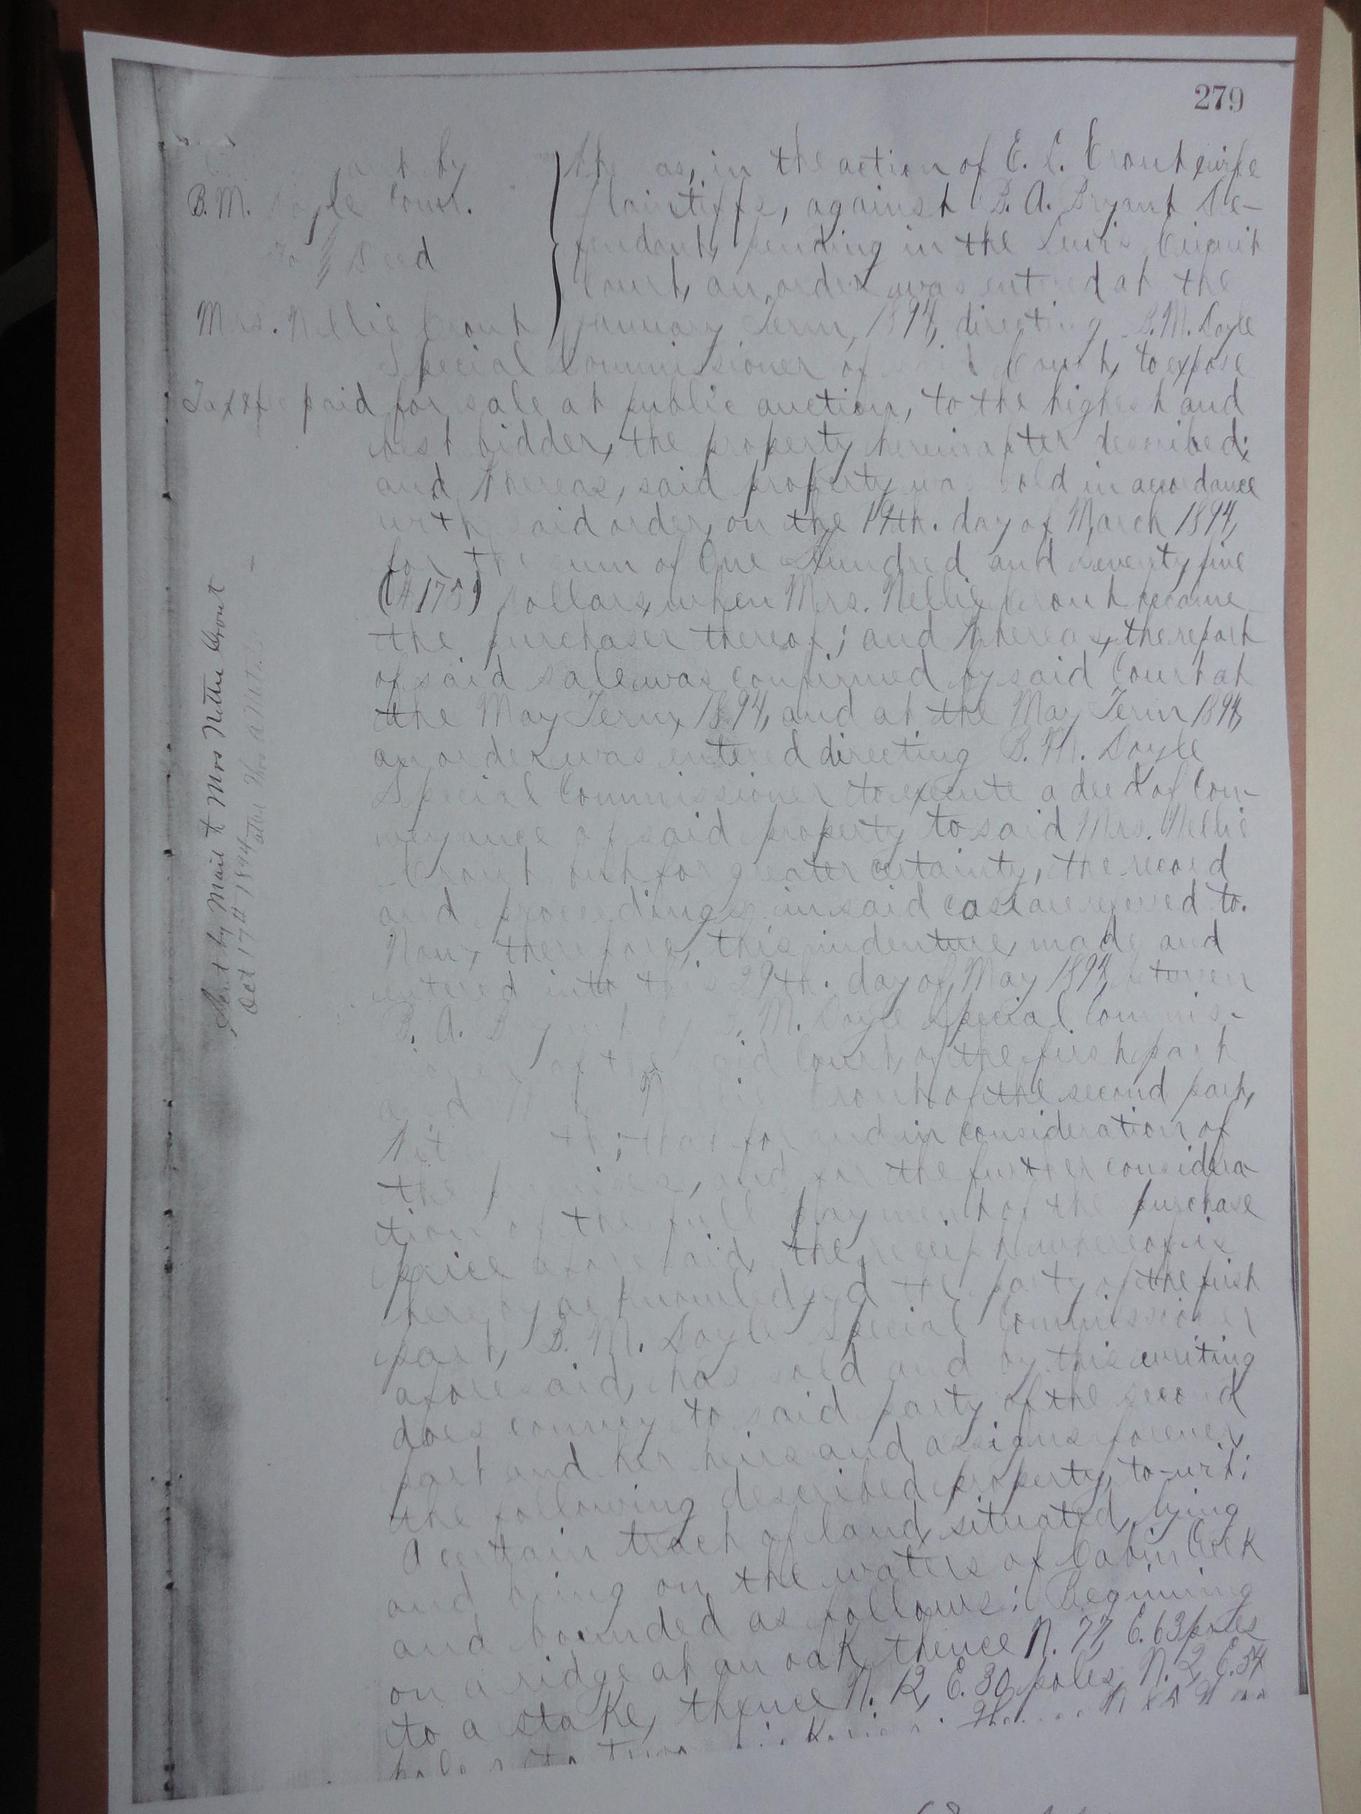 279
by
B.M. Doyle Comr.
To // Deed
Mrs. Nellie Crout
Taxes paid
as, in the action of E. C. Crout & wife
Plaintiffs, against B. A. Bryant De-
fendant, pending in the Lewis Circuit
Court, an order was entered at the
January Term, 1894, directing B.M. Doyle
Special Commissioner of said Court, to expose
for sale at public auction, to the highest and
best bidder, the property hereinafter described;
and Whereas, said property was sold in accordance
with said order, on the 19th. day of March 1894,
for the sum of One Hundred and seventy five
($175) Dollars, when Mrs. Nellie Crout became
the purchaser thereof; and Whereas, the report
of said sale was confirmed by said Court at
the May Term, 1894, and at the May Term 1894,
an order was entered directing B. M. Doyle
Special Commissioner to execute a deed of Con-
veyance of said property to said Mrs. Nellie
Crout but for greater certainty, the record
and proceedings in said case are referred to.
Now, therefore, this indenture, made and
entered into this 29th. day of May 1894, between
B. A. Bryant by B. M. Doyle Special Commis-
sioner of the said Court, of the first part
and Crout of the second part,
Witnesseth; that for and in consideration of
the premises, and for the further considera
tion of the full payment of the purchase
price aforesaid, the receipt whereof is
hereby acknowledged the party of the first
part, B. M. Doyle Special Commissioner
aforesaid, has sold and by this writing
does convey to said party of the second
part and her heirs and assigns forever,
the following described property, to-wit:
A certain track of land, situated, lying
and being on the waters of Cabin Creek
and bounded as follows: Beginning
on a ridge at an oak, thence N. 77, E. 63 poles
to a stake, thence N. 12, E. 30 poles, N. 2, E. 34
Sent by Mail to Mrs Nettie Crout
Oct 17th 1894